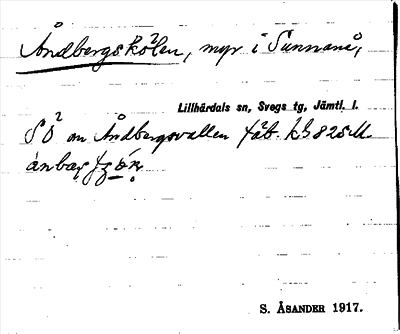 Åndbergskölen, myr i Sunnanå,
Lillhärdals sn, Svegs tg, Jämtl. l.
SÖ om Åndbergsvallen fäb. kb 825 M.
S. ÅSANDER 1917.